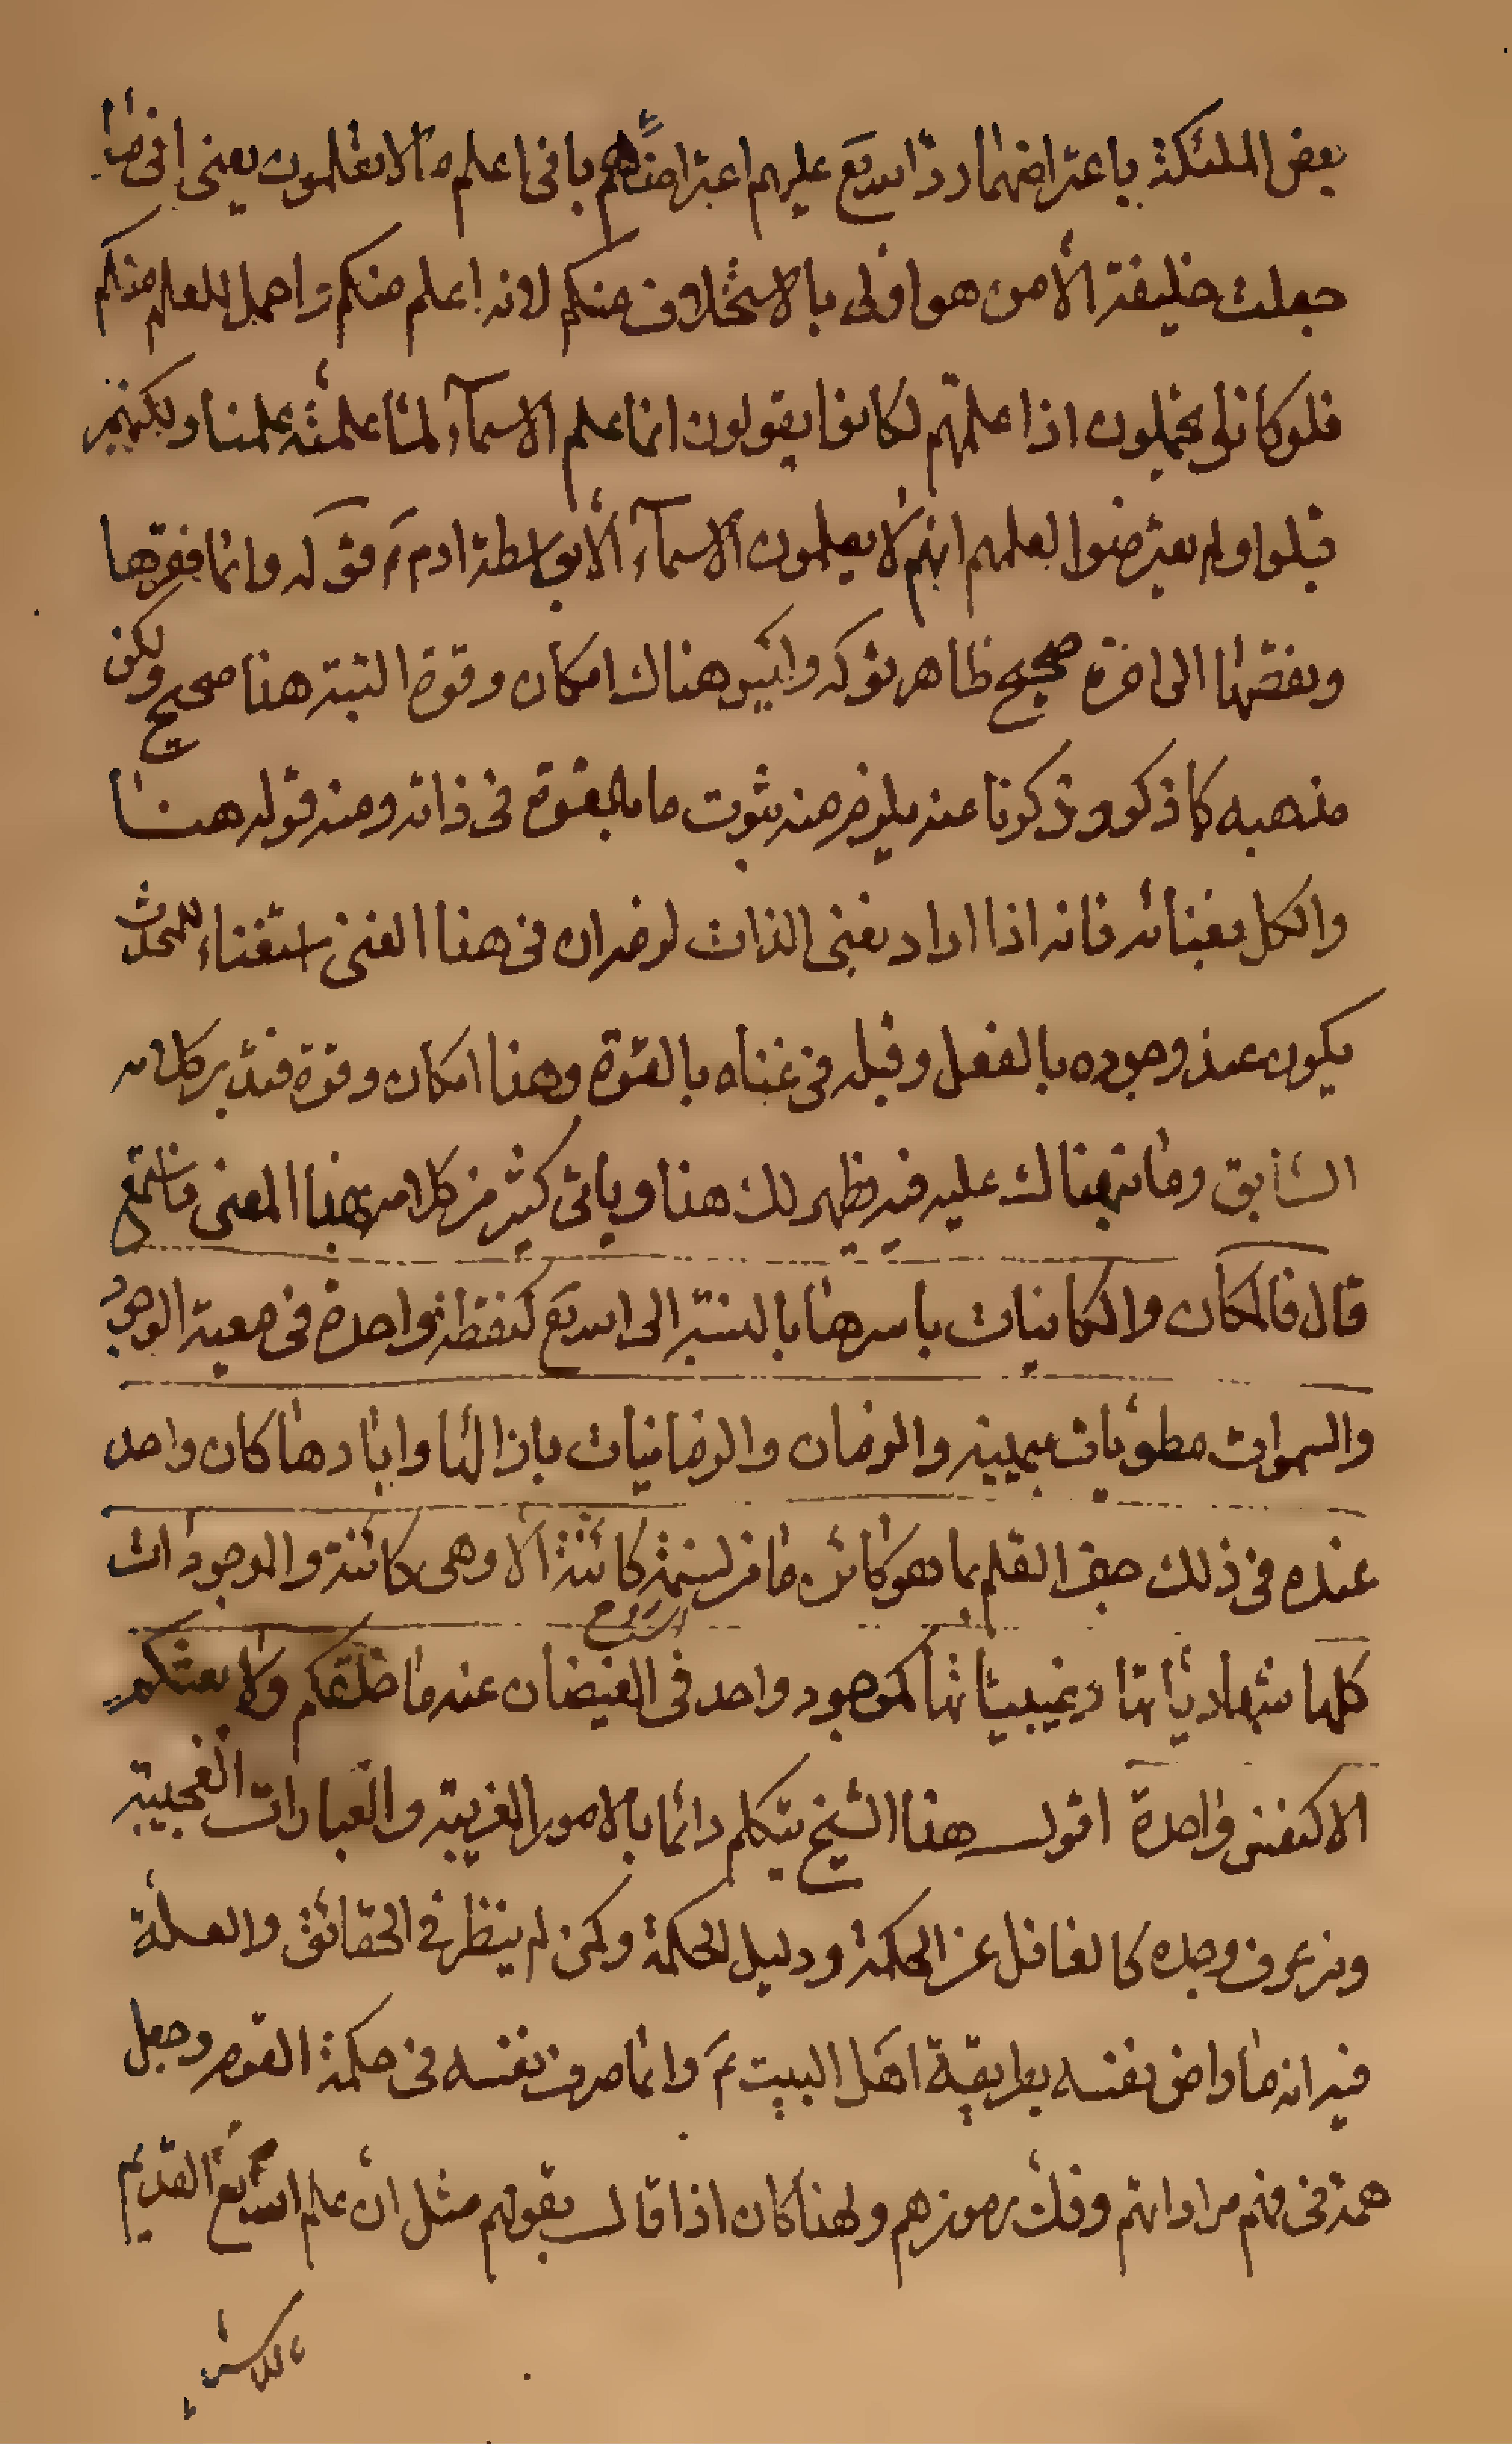 بعض الملئكة باعتراضهما رد الله تع عليهم اعتراضهم بانى اعلم ما لا تعلمون يعنى انى ما
جعلت خليفة الا من هو اولى بالاستخلاف منكم لانه اعلم منكم واحمل للعلم منكم
فلو كانوا يحتملون اذا علمتهم لكانوا يقولون انما علم الاسمآء لمّا علمته علمنا ولكنهم
قبلوا ولم يعترضوا لعلمهم انهم لا يعلمون الاسمآء الا بواسطة ادم ع قوله وانما فقرها
ونقصها الى اخره صحيح ظاهر قوله وليس هناك امكان وقوة البتة هنا صحيح ولكن
مذهبه كما ذكر وذكرنا عنه يلزم منه ثبوت ما بالقوة فى ذاته ومنه قوله هنا
والكل بغنائه فانه اذا اراد بغنى الذات لزمه ان فى هذا الغنى استغناء للمحدث
يكون عند وجوده بالفعل وقبله فى غناه بالقوة وهذا امكان وقوة فتدبر كلامه
السابق وما نبهناك عليه فيه يظهر لك هنا وياتى كثير من كلامه بهذا المعنى فاستمع
قال فالمكان والمكانيات باسرها بالنسبة الى الله تع كنقطة واحدة فى معية الوجود
والسموات مطويات بيمينه والزمان والزمانيات بازالها وابادها كان واحد
عنده فى ذلك جف القلم بما هو كائن ما من نسمة كائنة الا وهى كائنة والموجودات
كلها شهادياتها وغيبياتها كموجود واحد فى الفيضان عنه ما خلقكم ولا بعثكم
الا كنفس واحدة اقول هذا الشيخ يتكلم دائما بالامور الغريبة والعبارات العجيبة
ومن عرف وجده كالغافل عن الحكمة ودليل الحكمة وكمن لم ينظر فى الحقائق والعلة
فيه انه ما راض نفسه بطريقة اهل البيت ع وانما صرف نفسه فى حكمة القوم وجعل
همه فى فهم مراداتهم وفك رموزهم ولهذا كان اذا قال بقولهم مثل ان علم الله تع القديم